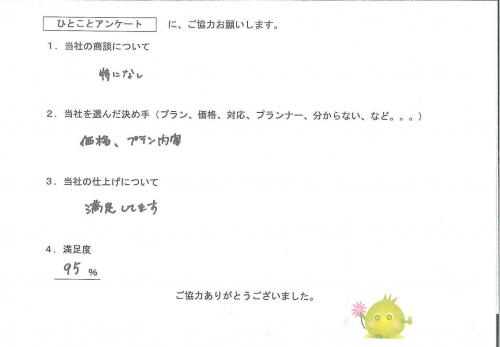 ひとことアンケート に、ご協力お願いします。
1．当社の商談について
特になし
2．当社を選んだ決め手（プラン、価格、対応、プランナー、分からない、など。。。）
価格、プラン内容
3．当社の仕上げについて
満足してます
4．満足度
95 %
ご協力ありがとうございました。